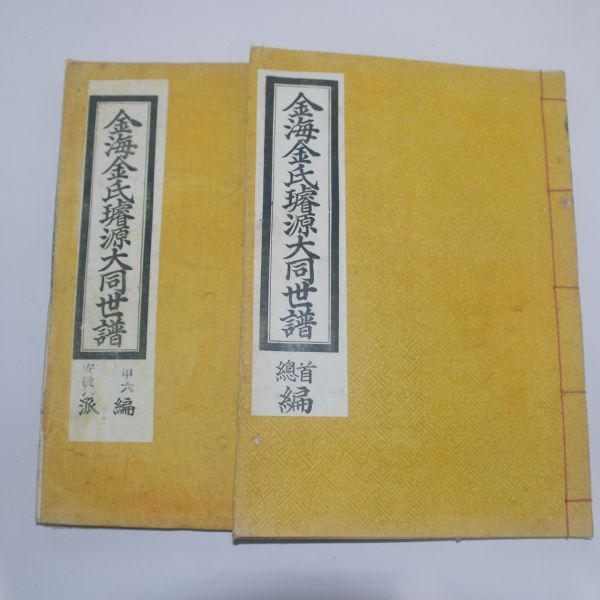 金海金氏璿源大同世譜
甲六編
派
金海金氏璿源大同世譜
首
總
編